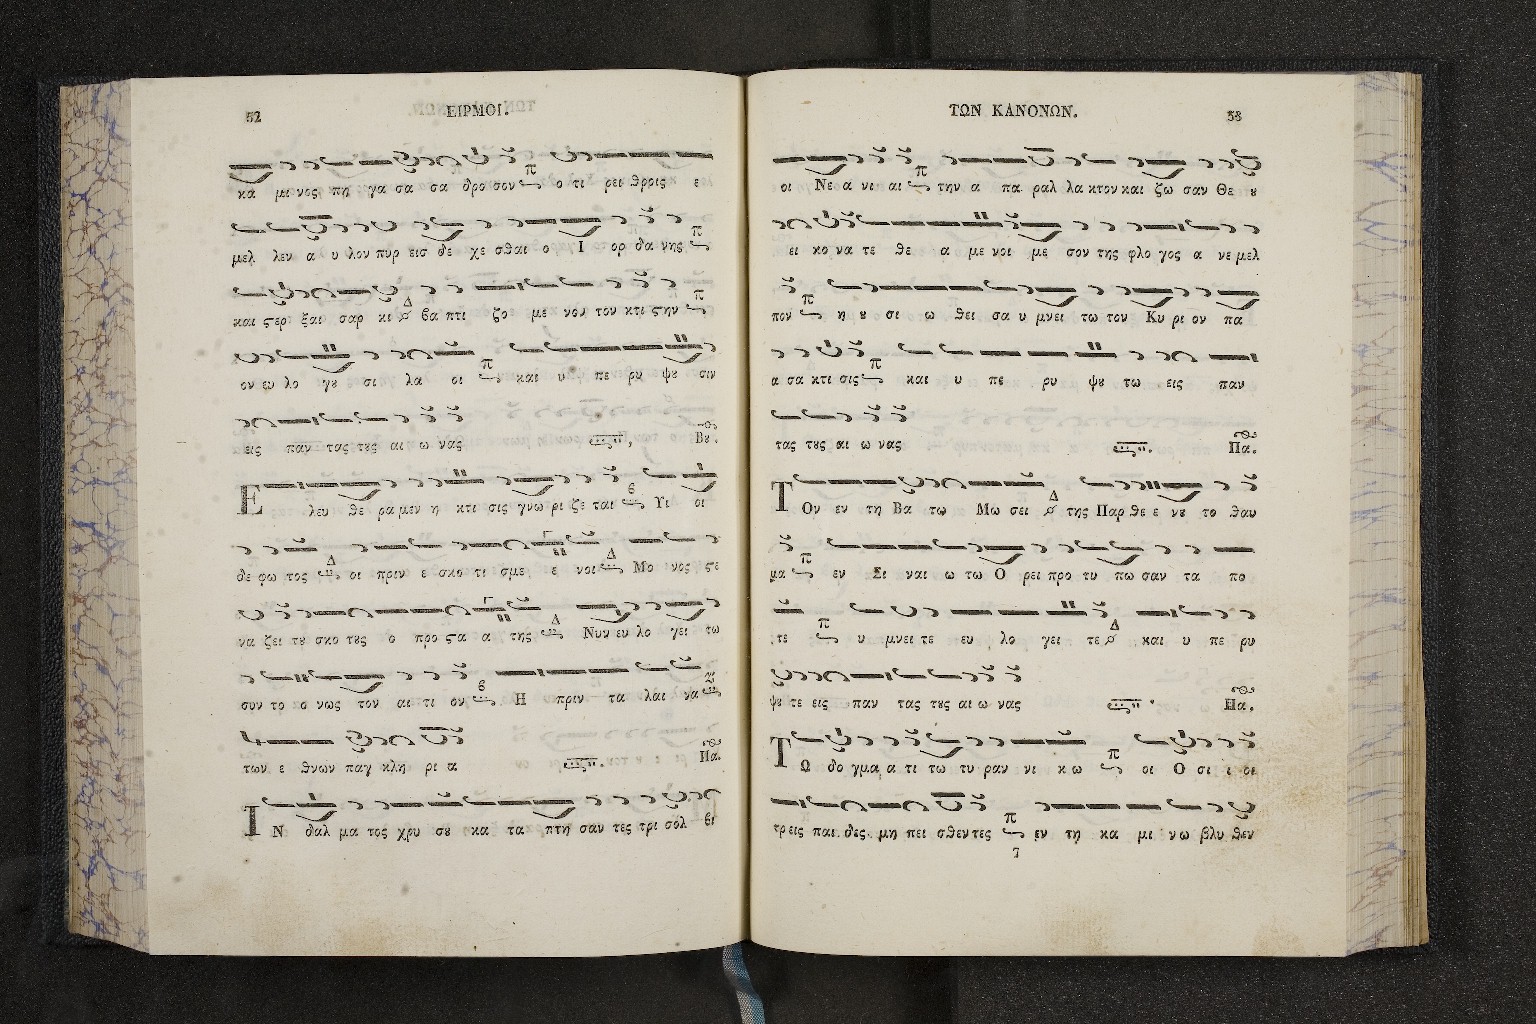 52 ΕΙΡΜΟΙ.
κα μι νος πη γα σα σα δρο σον ο τι ρει θροις ε
μελ λεν α ϋ λον πυρ εισ δε χε σθαι ο Ι ορ δα νης
και ϛερ ξαι σαρ κι βα πτι ζο με νον τον κτι ϛην
ον ευ λο γȣ σι λα οι και υ πε ρυ ψȣ σιν
εις παν τας τȣς αι ω νας Βȣ.
Ε λευ θε ρα μεν η κτι σις γνω ρι ζε ται Υι οι
δε φω τος οι πριν ε σκο τι σμε ε νοι Μο νος ϛε
να ζει τȣ σκο τȣς ο προ ϛα α της Νυν ευ λο γει τω
συν το ο νως τον αι τι ον Η πριν τα λαι να
των ε θνων παγ κλη ρι α Πα.
Ι Ν δαλ μα τος χρυ σȣ κα τα πτη σαν τες τρι σολ βι
ΤΩΝ ΚΑΝΟΝΩΝ. 53
οι Νε α νι αι την α πα ραλ λα κτον και ζω σαν Θε ȣ
ει κο να τε θε α με νοι με σον της φλο γος α νε μελ
πον η ȣ σι ω θει σα υ μνει τω τον Κυ ρι ον πα
α σα κτι σις και υ πε ρυ ψȣ τω εις παν
τας τȣς αι ω νας Πα.
Τ Ον εν τη Βα τω Μω σει της Παρ θε ε νȣ το θαυ
μα εν Σι ναι ω τω Ο ρει προ τυ πω σαν τα πο
τε υ μνει τε ευ λο γει τε και υ πε ρυ
ψȣ τε εις παν τας τȣς αι ω νας Πα.
Τ Ω δο γμα α τι τω τυ ραν νι κω οι Ο σι ι οι
τρεις παι δες μη πει σθεντες εν τη κα μι νω βλυ θεν
7